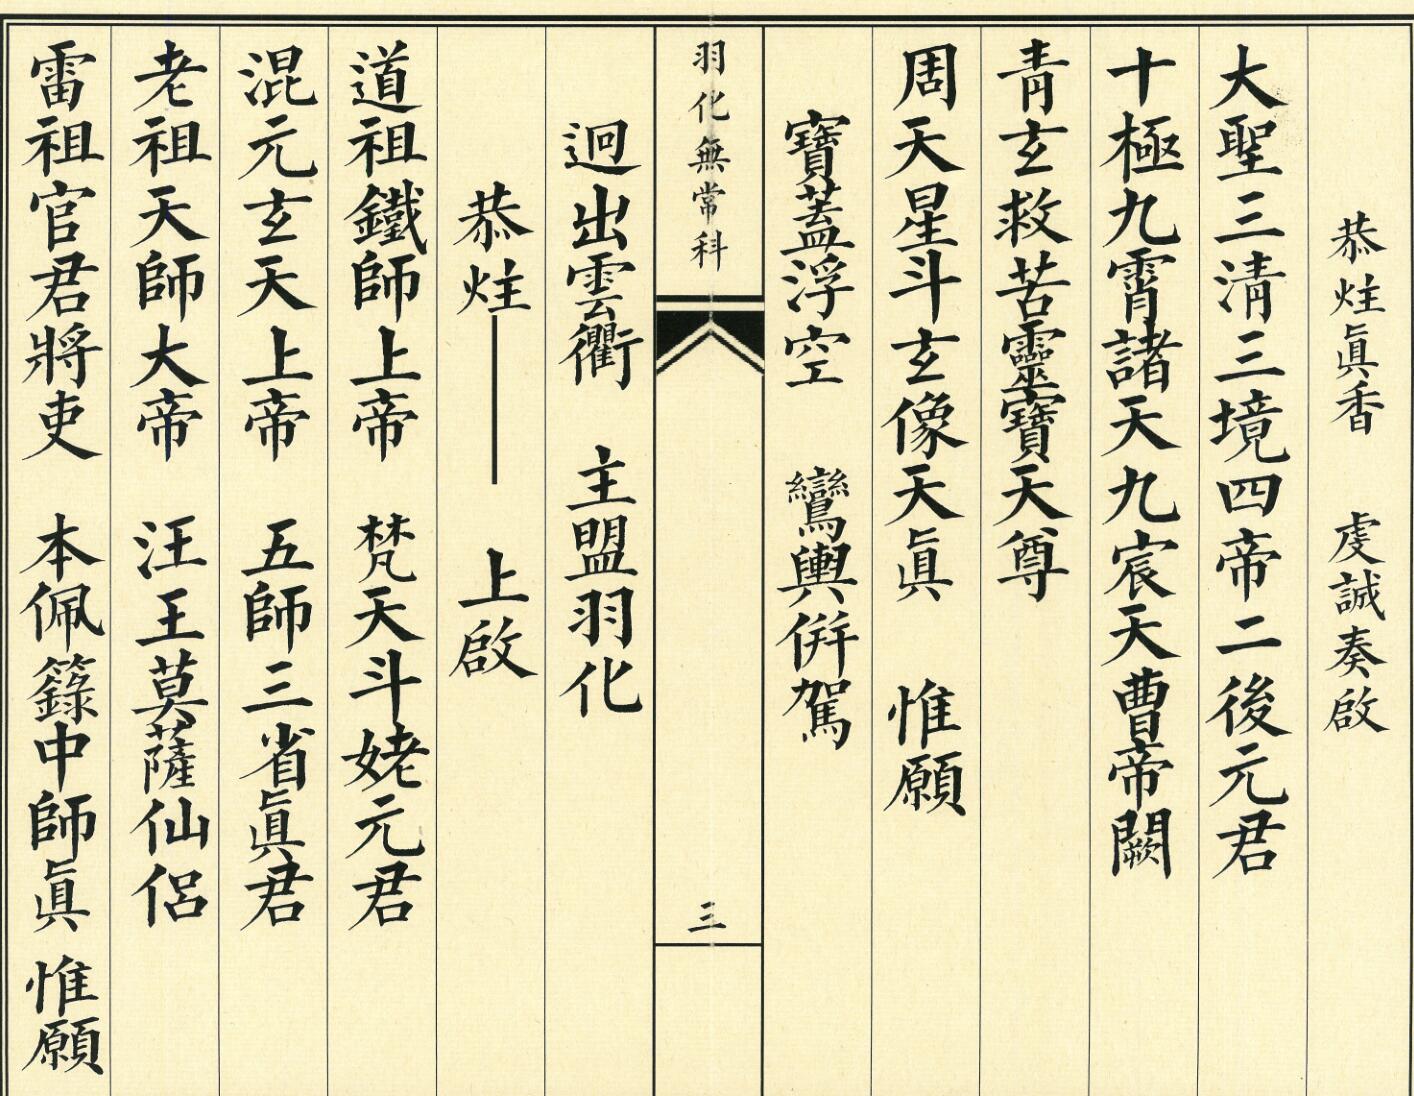 恭炷眞香　虔誠奏啟
大聖三清三境四帝二後元君
十極九霄諸天九宸天曹帝闕
青玄救苦靈寶天尊
周天星斗玄像天眞　惟願
寶蓋浮空　鸞輿併駕
羽化無常科
三
迥出雲衢　主盟羽化
恭炷——上啟
道祖鐵師上帝　梵天斗姥元君
混元玄天上帝　五師三省眞君
老祖天師大帝　汪王莫薩仙侶
雷祖官君將吏　本佩籙中師眞　惟願